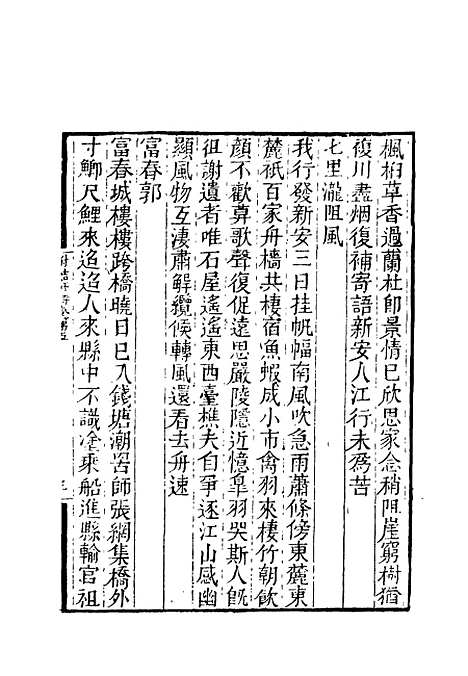 楓桕草香過蘭杜即景情已欣思家念稍阻崖窮樹猶
複川盡烟復補寄語新安人江行未為苦
七里瀧阻風
我行發新安三日挂帆幅南風吹急雨蕭條傍東麓東
麓祇百家舟檣共棲宿魚蝦成小市禽羽來棲竹朝飲
顔不歡莫歌聲復促遠思嚴陵隱近憶臯羽哭斯人旣
徂謝遺者唯石屋遙遙東西臺樵夫自爭逐江山感幽
顯風物互淒肅艀纜候轉風還看去舟速
富春郭
富春城樓樓跨橋曉日已入錢塘潮罟師張網集橋外
寸鯽尺鯉來迢迢人來縣中不識塗乘船進縣輸官祖